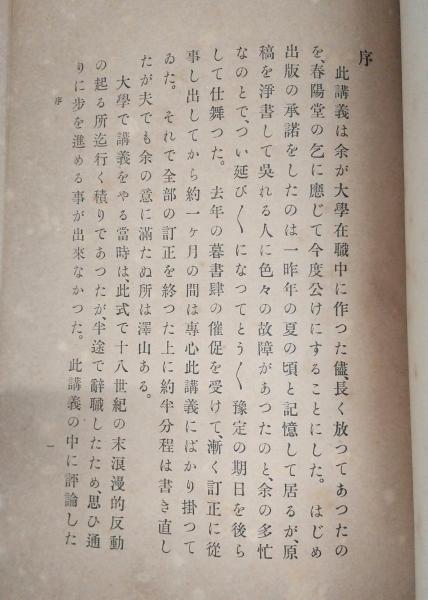 序
此講義は余が大學在職中に作つた儘、長く放つてあつたの
を、春陽堂の乞に應じて今度公けにすることにした。はじめ
出版の承諾をしたのは一昨年の夏の頃と記憶して居るが、原
稿を淨書して吳れる人に色々の故障があつたのと、余の多忙
なのとで、つい延び〳〵になつてとう〳〵豫定の期日を後ら
して仕舞つた。去年の暮書肆の催促を受けて、漸く訂正に從
事し出してから約一ヶ月の間は專心此講義にばかり掛つて
ゐた。それで全部の訂正を終つた上に約半分程は書き直し
たが夫でも余の意に滿たぬ所は澤山ある。
大學で講義をやる當時は、此式で十八世紀の末浪漫的反動
の起る所迄行く積りであつたが、半途で辭職したため、思ひ通
りに步を進める事が出來なかつた。此講義の中に評論した
序
一